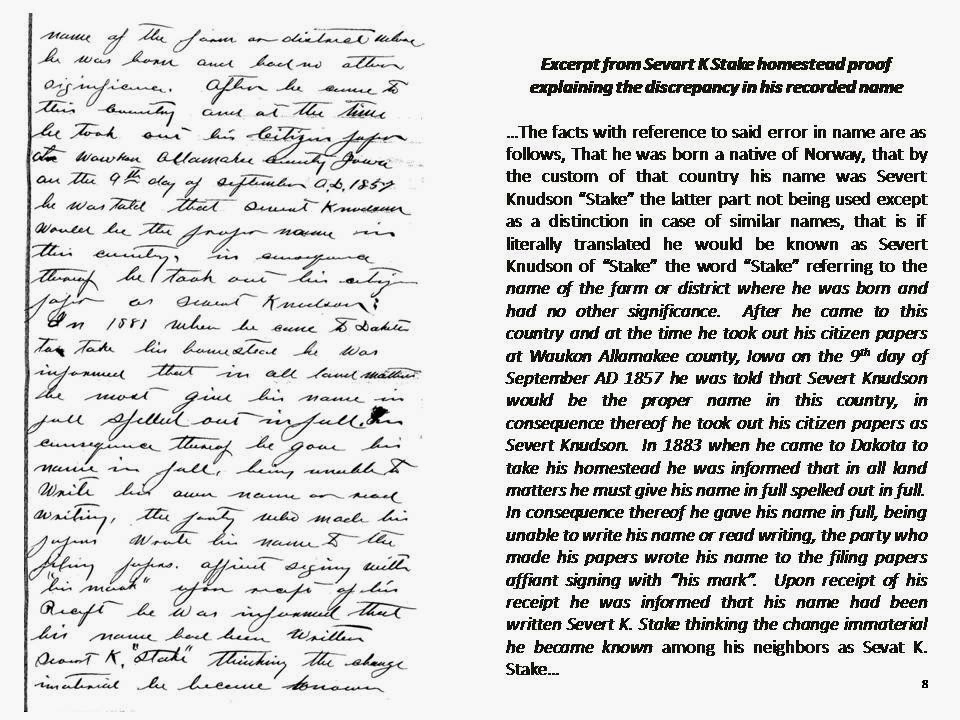 name of the farm or district where
he was born and had no other
significence. After he came to
this country and at the time
he took out his Citizen paper
at Waukon Allamakee County, Iowa
on the 9th day of September A.D. 1857
he was told that Severt Knudson
would be the proper name in
this country, in consequence
thereof he took out his citizen
paper as Severt Knudson;
In 1881 when he came to Dakota
to take his homestead he was
informed that in all land matters
he most give his name in
full spelled out in full. In
consequence thereof he gave his
name in full, being unable to
Write his own name or read
Writing, the party who made his
papers Wrote his name to the
filing papers. affiant signing with
"his mark" upon receipt of his
Receipt he Was informed that
his name had been Written
Severt K. "Stake" thinking the change
imaterial he became known
Excerpt from Sevart K Stake homestead proof
explaining the discrepancy in his recorded name
...The facts with reference to said error in name are as
follows, That he was born a native of Norway, that by
the custom of that country his name was Severt
Knudson “Stake” the latter part not being used except
as a distinction in case of similar names, that is if
literally translated he would be known as Severt
Knudson of “Stake” the word “Stake” referring to the
name of the farm or district where he was born and
had no other significance. After he came to this
country and at the time he took out his citizen papers
at Waukon Allamakee county, Iowa on the 9th day of
September AD 1857 he was told that Severt Knudson
would be the proper name in this country, in
consequence thereof he took out his citizen papers as
Severt Knudson. In 1883 when he came to Dakota to
take his homestead he was informed that in all land
matters he must give his name in full spelled out in full.
In consequence thereof he gave his name in full, being
unable to write his name or read writing, the party who
made his papers wrote his name to the filing papers
affiant signing with “his mark”. Upon receipt of his
receipt he was informed that his name had been
written Severt K. Stake thinking the change immaterial
he became known among his neighbors as Sevat K.
Stake...
8